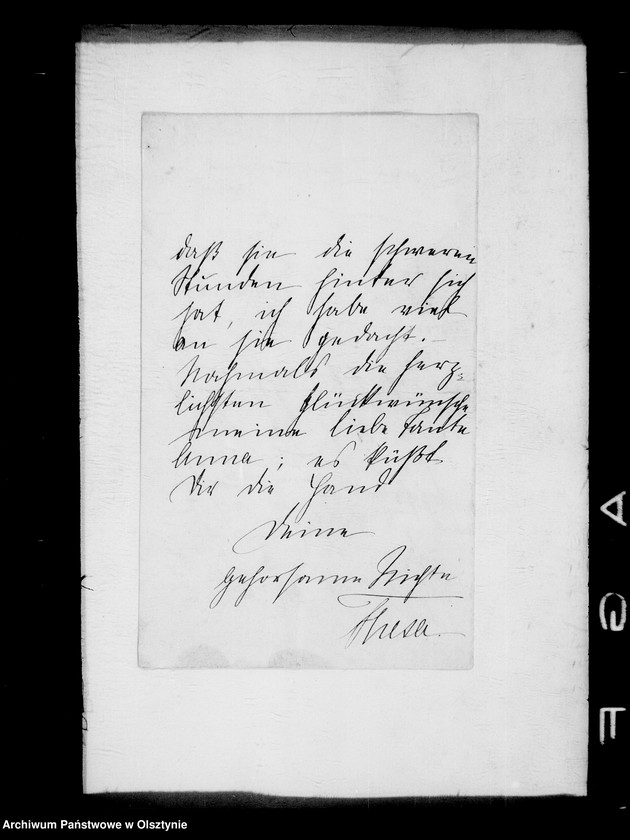 daß sie die schweren
Stunden hinter sich
hat, ich habe viel
an sie gedacht. –
Nochmals die herz-
lichsten Glückwünsche
meine liebe Tante
Anna; es küßt
Dir die Hand
Deine
gehorsame Nichte
Thesa.
AGFA
Archiwum Państwowe w Olsztynie